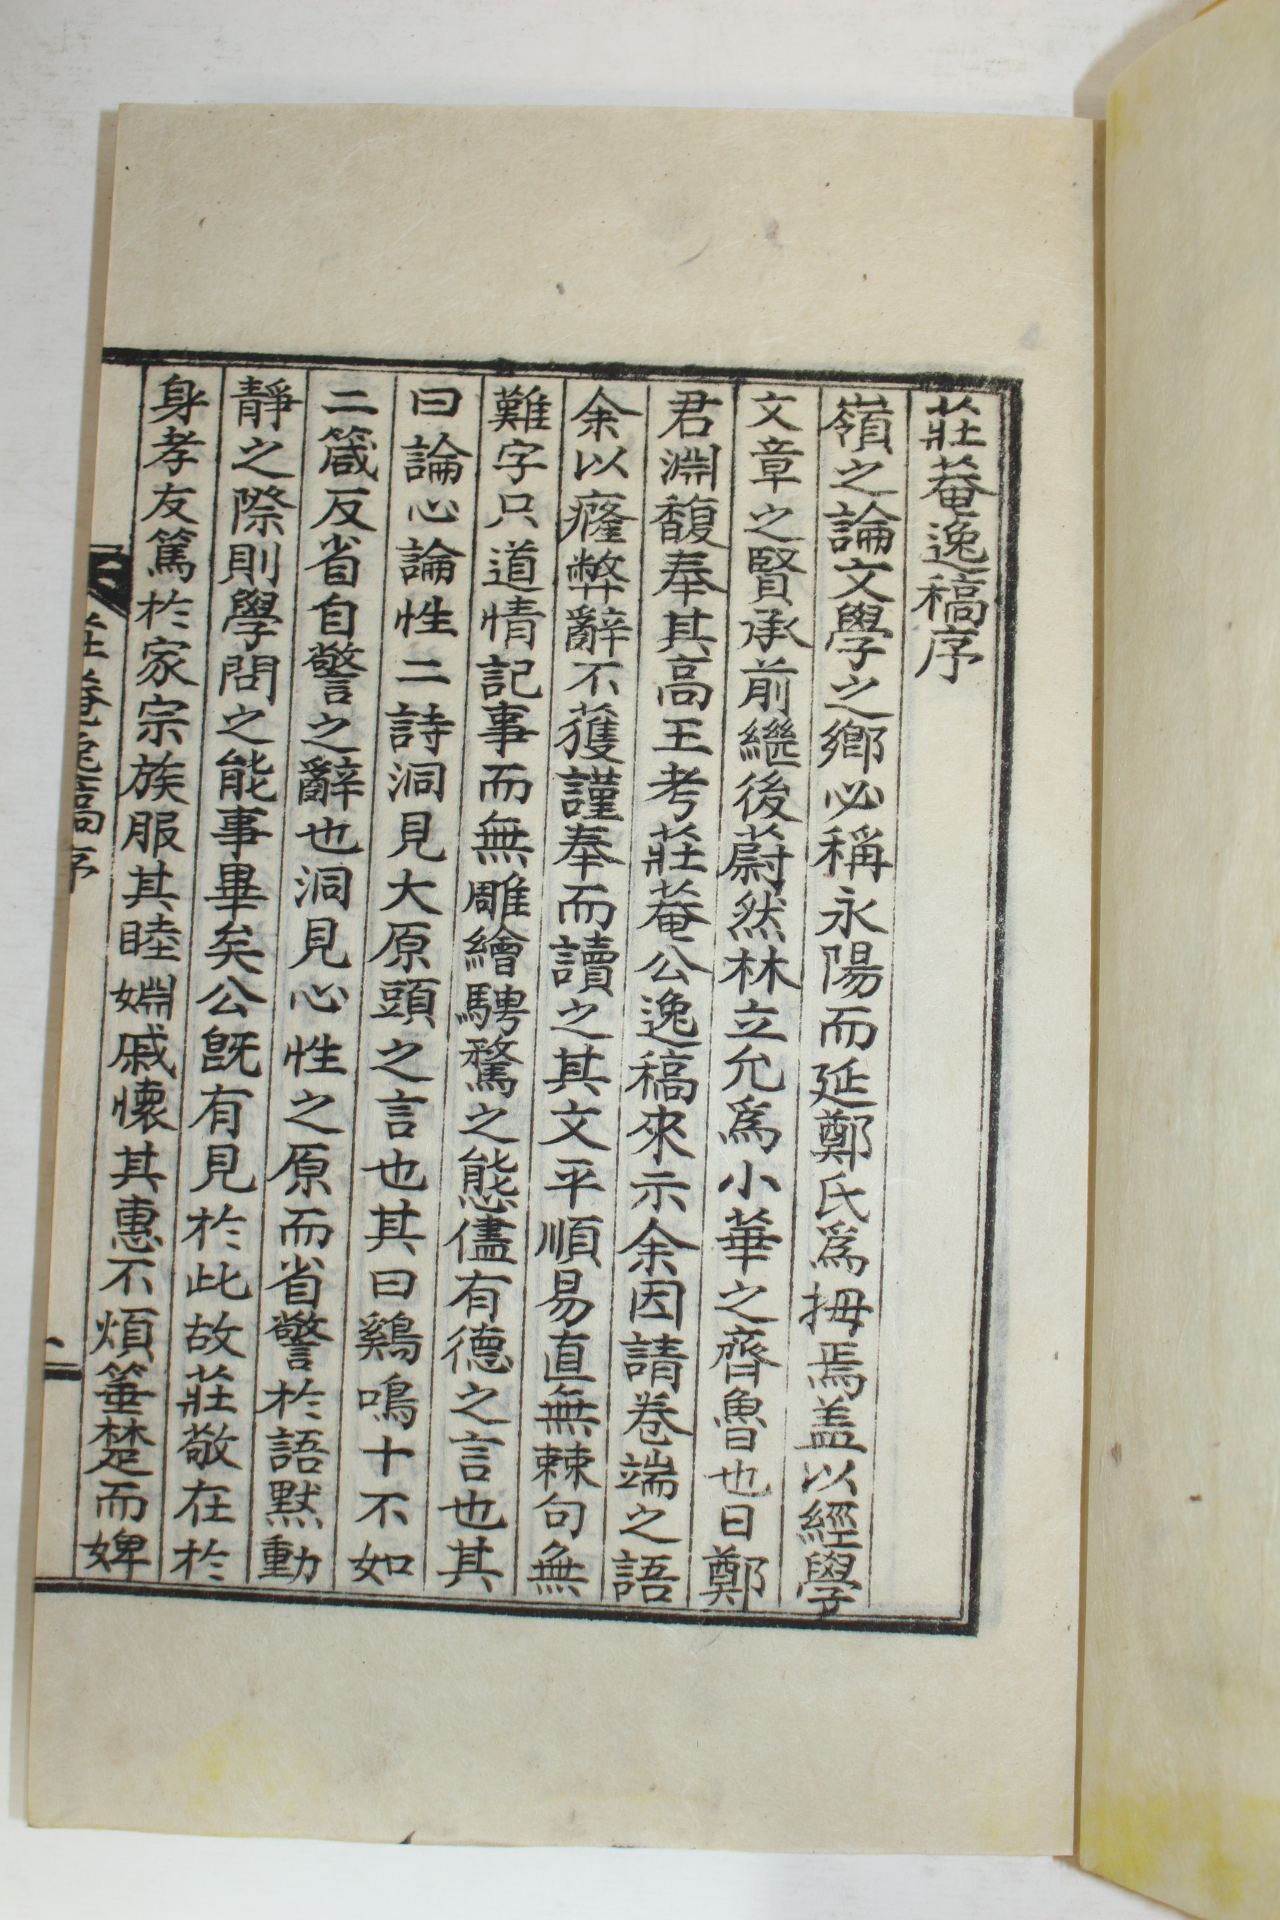 莊菴逸稿序
嶺之論文學之鄉必稱永陽而延鄭氏爲拇焉盖以經學
文章之賢承前繼後蔚然林立允爲小華之齊魯也日鄭
君淵馥奉其高王考莊菴公逸稿來示余因請卷端之語
余以癃弊辭不獲謹奉而讀之其文平順易直無棘句無
難字只道情記事而無雕繪騁騖之態儘有德之言也其
曰論心論性二詩洞見大原頭之言也其曰鷄鳴十不如
二箴反省自警之辭也洞見心性之原而省警於語默動
靜之際則學問之能事畢矣公旣有見於此故莊敬在於
身孝友篤於家宗族服其睦婣戚懷其惠不煩箠楚而婢
莊菴逸稿序
一